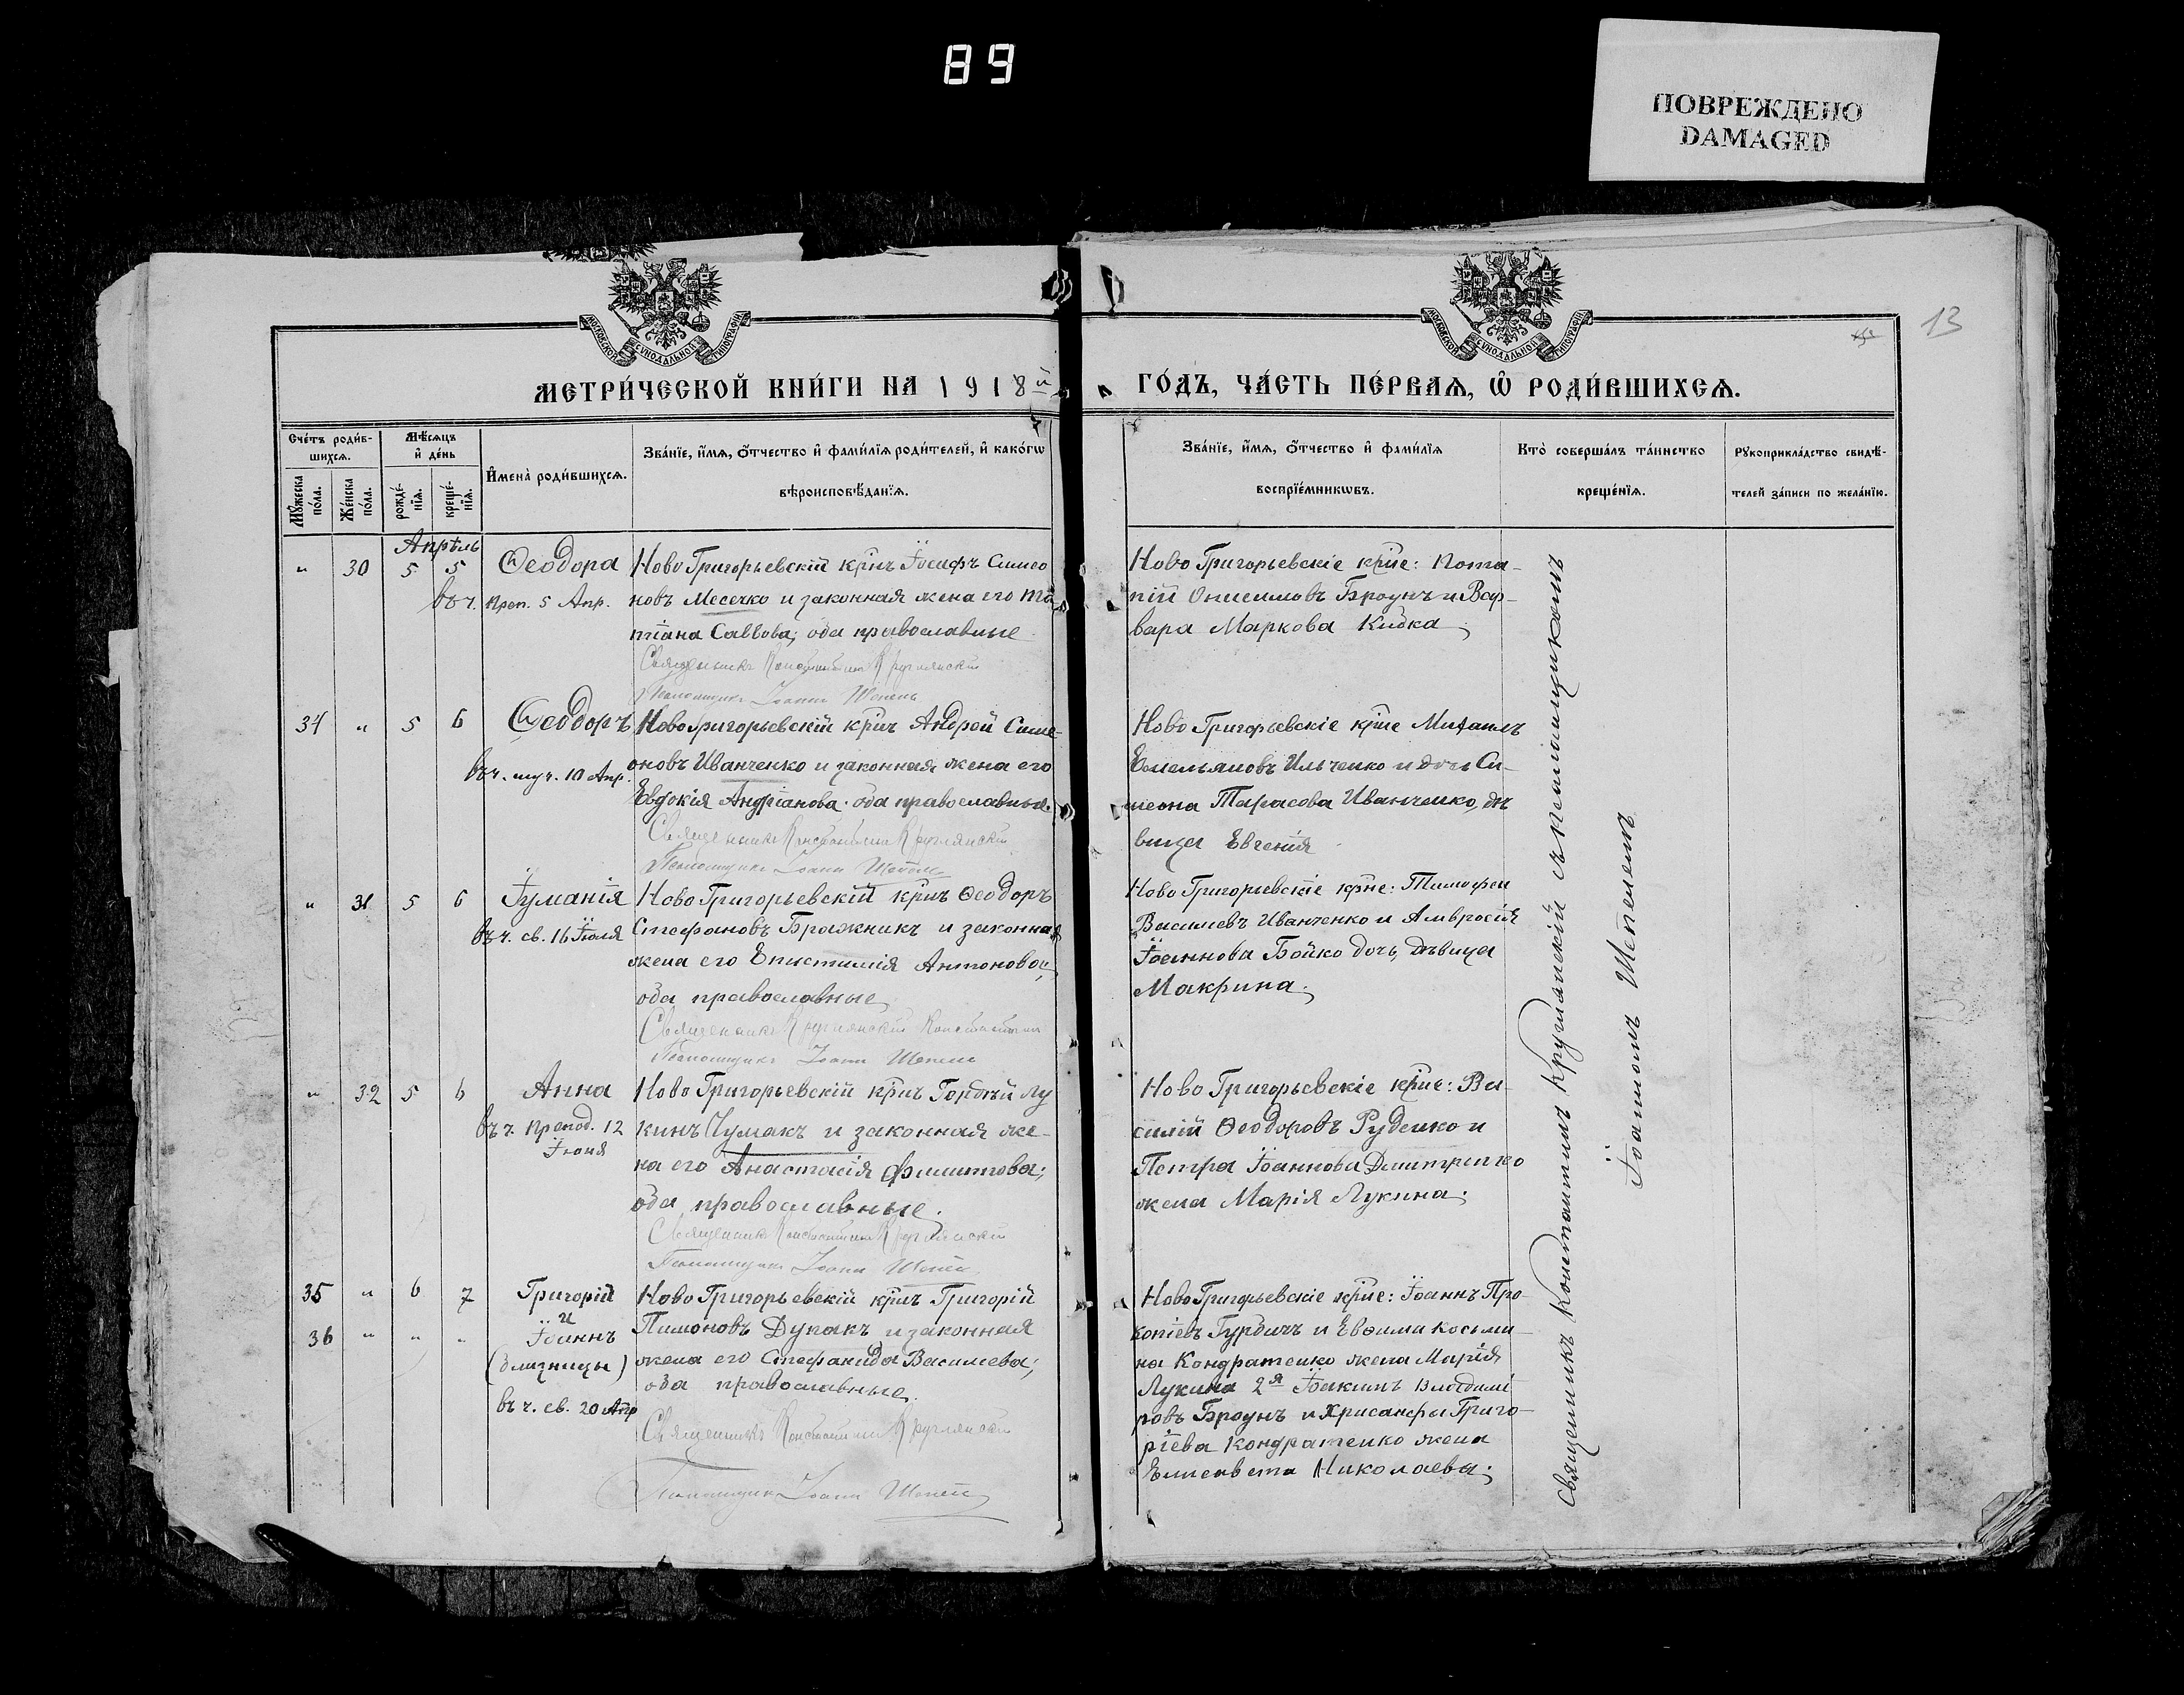 89
ПОВРЕЖДЕНО
DAMAGED
13
МОСКОВСКОЙ СѴНОДАЛЬНОЙ ТИПОГРАФІИ
МОСКОВСКОЙ СѴНОДАЛЬНОЙ ТИПОГРАФІИ
МЕТРИ́ЧЕСКОЙ КНИ́ГИ НА 1918й
ГО́ДЪ, ЧА́СТЬ ПЕ́РВАѦ, Ѡ РОДИ́ВШИХСѦ.
Сче́тъ роди́в-
шихсѧ.
Мѣ́сѧцъ
и҆ де́нь
Мꙋ́жеска по́ла.
Же́нска по́ла.
рожде́-нїѧ.
креще́-нїѧ.
И҆мена̀ роди́вшихсѧ.
Зва́нїе, и҆́мѧ, ѻ҆́тчество и҆ фами́лїѧ роди́телей, и҆ како́гѡ
вѣроисповѣ́данїѧ.
Зва́нїе, и҆́мѧ, ѻ҆́тчество и҆ фами́лїѧ
воспрїе́мникѡвъ.
Кто̀ соверша́лъ та́инство
креще́нїѧ.
Рꙋкоприкла́дство свидѣ́-
телей за́писи по жела́нїю.
Апрѣль
" 30 5 5 Ѳеодора
въ ч. Преп. 5 Апр.
Ново Григорьевскій крнъ Іосифъ Симео
новъ Месечко и законная жена его Та
тіана Саввова; оба православные
Священникъ Константинъ Круглянскій
Псаломщикъ Іоаннъ Шепель
Ново Григорьевскіе крне: Пота-
пій Онисимовъ Броунъ и Вар-
вара Маркова Кибка;
34 " 5 6 Ѳеодоръ
въ ч. муч. 10 Апр.
Ново Григорьевскій крнъ Андрей Симе-
оновъ Иванченко и законная жена его
Евдокія Андріанова. оба православные.
Священникъ Константинъ Круглянскій
Псаломщикъ Іоаннъ Шепель
Ново Григорьевскіе крне Михаилъ
Емельяновъ Ильченко и дочь Си-
меона Тарасова Иванченко, дѣ
вица Евгенія
" 31 5 6 Іуліанія
въ ч. св. 16 Іюля
Ново Григорьевскій крнъ Ѳеодоръ
Стефановъ Бражникъ и законная
жена его Епистимія Антонова;
оба православные
Священникъ Круглянскій Константинъ
Псаломщикъ Іоаннъ Шепель
Ново Григорьевскіе крне: Тимофей
Васильевъ Иванченко и Амвросія
Іоаннова Бойко дочь, дѣвица
Макрина;
" 32 5 6 Анна
въ ч. Препод. 12
Іюня
Ново Григорьевскій крнъ Гордѣй Лу
кинъ Чумакъ и законная же-
на его Анастасія Филиппова;
оба православные.
Священникъ Константинъ Круглянскій
Псаломщикъ Іоаннъ Шепель
Ново Григорьевскіе крне: Ва-
силій Ѳеодоровъ Руденко и
Петра Іоаннова Дмитренко
жена Марія Лукина;
35 " 6 7 Григорій
и
36 " " " Іоаннъ
(близнецы)
въ ч. св. 20 Апр
Ново Григорьевскій крнъ Григорій
Пимоновъ Дукакъ и законная
жена его Стефанида Васильева;
оба православные.
Священникъ Константинъ Круглянскій
Псаломщикъ Іоаннъ Шепель
Ново Григорьевскіе крне: Іоаннъ Про-
копіевъ Гурбичъ и Евѳима Косьми-
на Кондратенко жена Марія
Лукина 2я Іоакимъ Владимі
ровъ Броунъ и Хрисанфа Григо-
ріева Кондратенко жена
Елисавета Николаева;
Священникъ Константинъ Круглянскій съ псаломщикомъ
Іоанномъ Шепелемъ